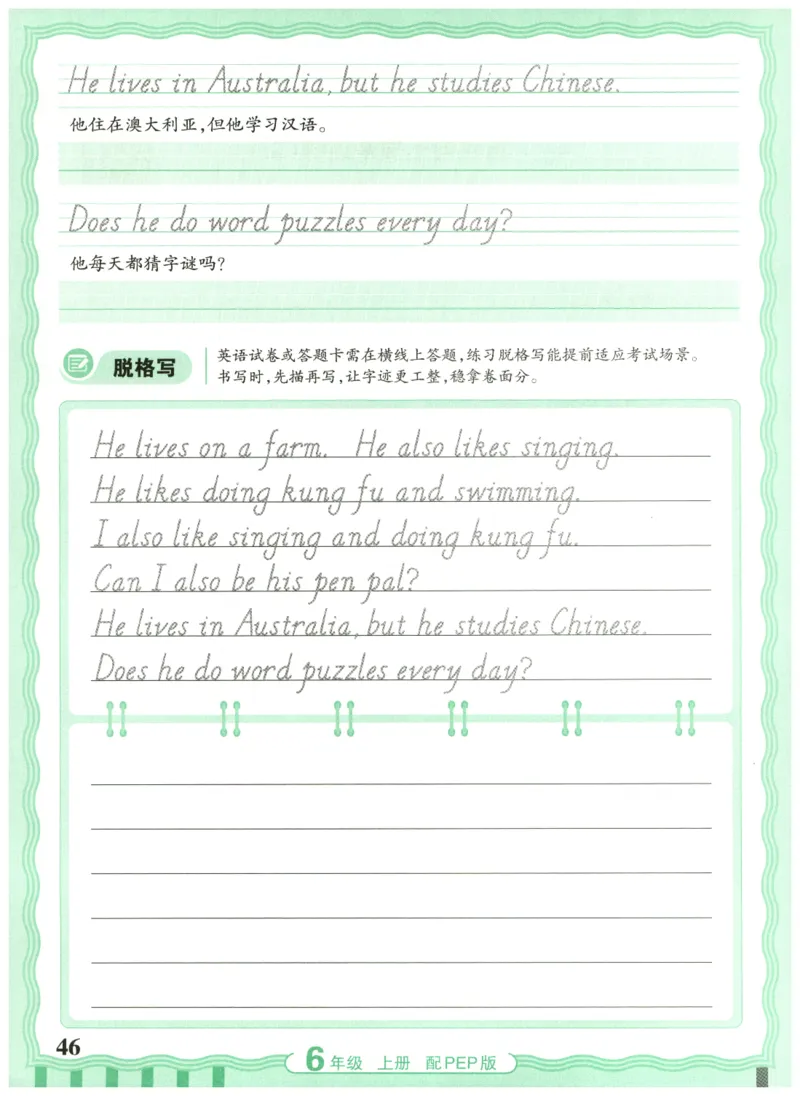 He lives in Australia, but he studies Chinese.
他住在澳大利亚,但他学习汉语。
Does he do word puzzles every day?
他每天都猜字谜吗?
脱格写
英语试卷或答题卡需在横线上答题,练习脱格写能提前适应考试场景。
书写时,先描再写,让字迹更工整,稳拿卷面分。
He lives on a farm. He also likes singing.
He likes doing kung fu and swimming.
I also like singing and doing kung fu.
Can I also be his pen pal?
He lives in Australia, but he studies Chinese.
Does he do word puzzles every day?
46
6年级 上册 配PEP版